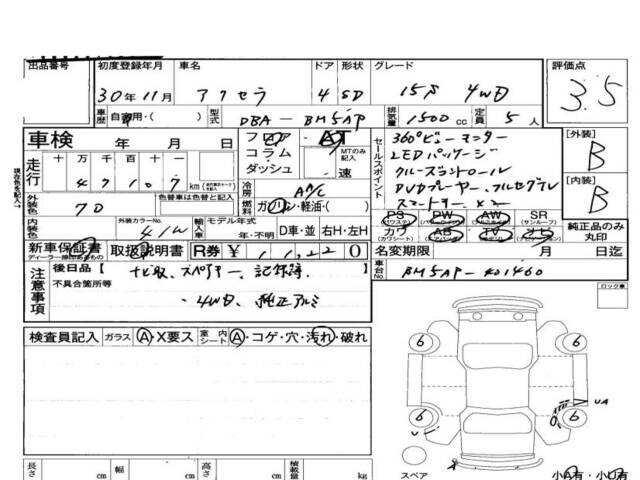 出品番号 初度登録年月 車名 ドア 形状 グレード 評価点
30年11月 アクセラ 4 SD 15S 4WD 3.5
車歴 自家用・( ) 型式 DBA-BM5AP 排気量 1500cc 定員 5人
車検 年 月 日
フロア AT
コラム MTのみ記入
ダッシュ 速
セールスポイント
360°ビューモニター
LEDパッケージ
クルーズコントロール
DVDプレーヤー、フルセグTV
スマートキー×2
[外装] B
[内装] B
現在色を記入→
走行 十 万 千 百 十 一
47107 km
冷房 A/C
燃料 ガソリン・軽油・( )
外装色 色替車は色替と記入
内装色 外装カラーNo. 41W
輸入車 モデル年式 年・不明 D車・並 右H・左H
PS PW AW SR
(パワステ) (サンルーフ)
カワ AB TV ナビ
(カワシート)
純正品のみ丸印
新車保証書 取扱説明書 R券 ¥ 11,220
ディーラー捺印あるもの
名変期限 月 日迄
注意事項
後日品【 ナビ取、スペアキー、記録簿
不具合箇所等
・4WD、純正アルミ
車台No. BM5AP-401460
ロック車
検査員記入 ガラス A・X要ス 室内シート A・コゲ・穴・汚れ・破れ
6 6
6 6
UA
U
A
スペア
長さ cm 幅 cm 高さ cm 積載量 kg
小A有・小U有